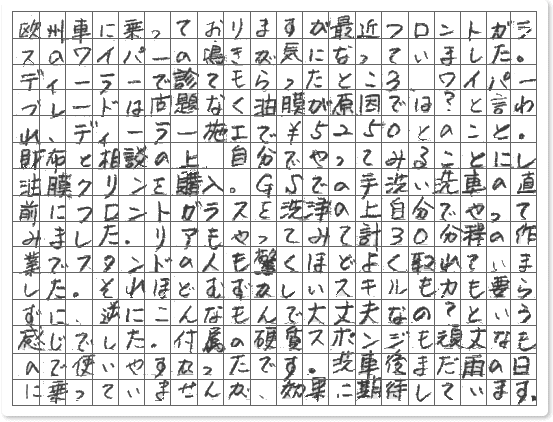 欧州車に乗っておりますが最近フロントガラ
スのワイパーの鳴きが気になっていました。
ディーラーで診てもらったところ、ワイパー
ブレードは問題なく油膜が原因では？と言わ
れ、ディーラー施工で￥5250とのこと。
財布と相談の上、自分でやってみることにし
油膜クリンを購入。GSでの手洗い洗車の直
前にフロントガラスを洗浄の上自分でやって
みました。リアもやってみて計30分程の作
業でスタンドの人も驚くほどよく取れていま
した。それほどむずかしいスキルも力も要ら
ずに、逆にこんなもんで大丈夫なの？という
感じでした。付属の硬質スポンジも頑丈なも
ので使いやすかったです。洗車後まだ雨の日
に乗っていませんが、効果に期待しています。